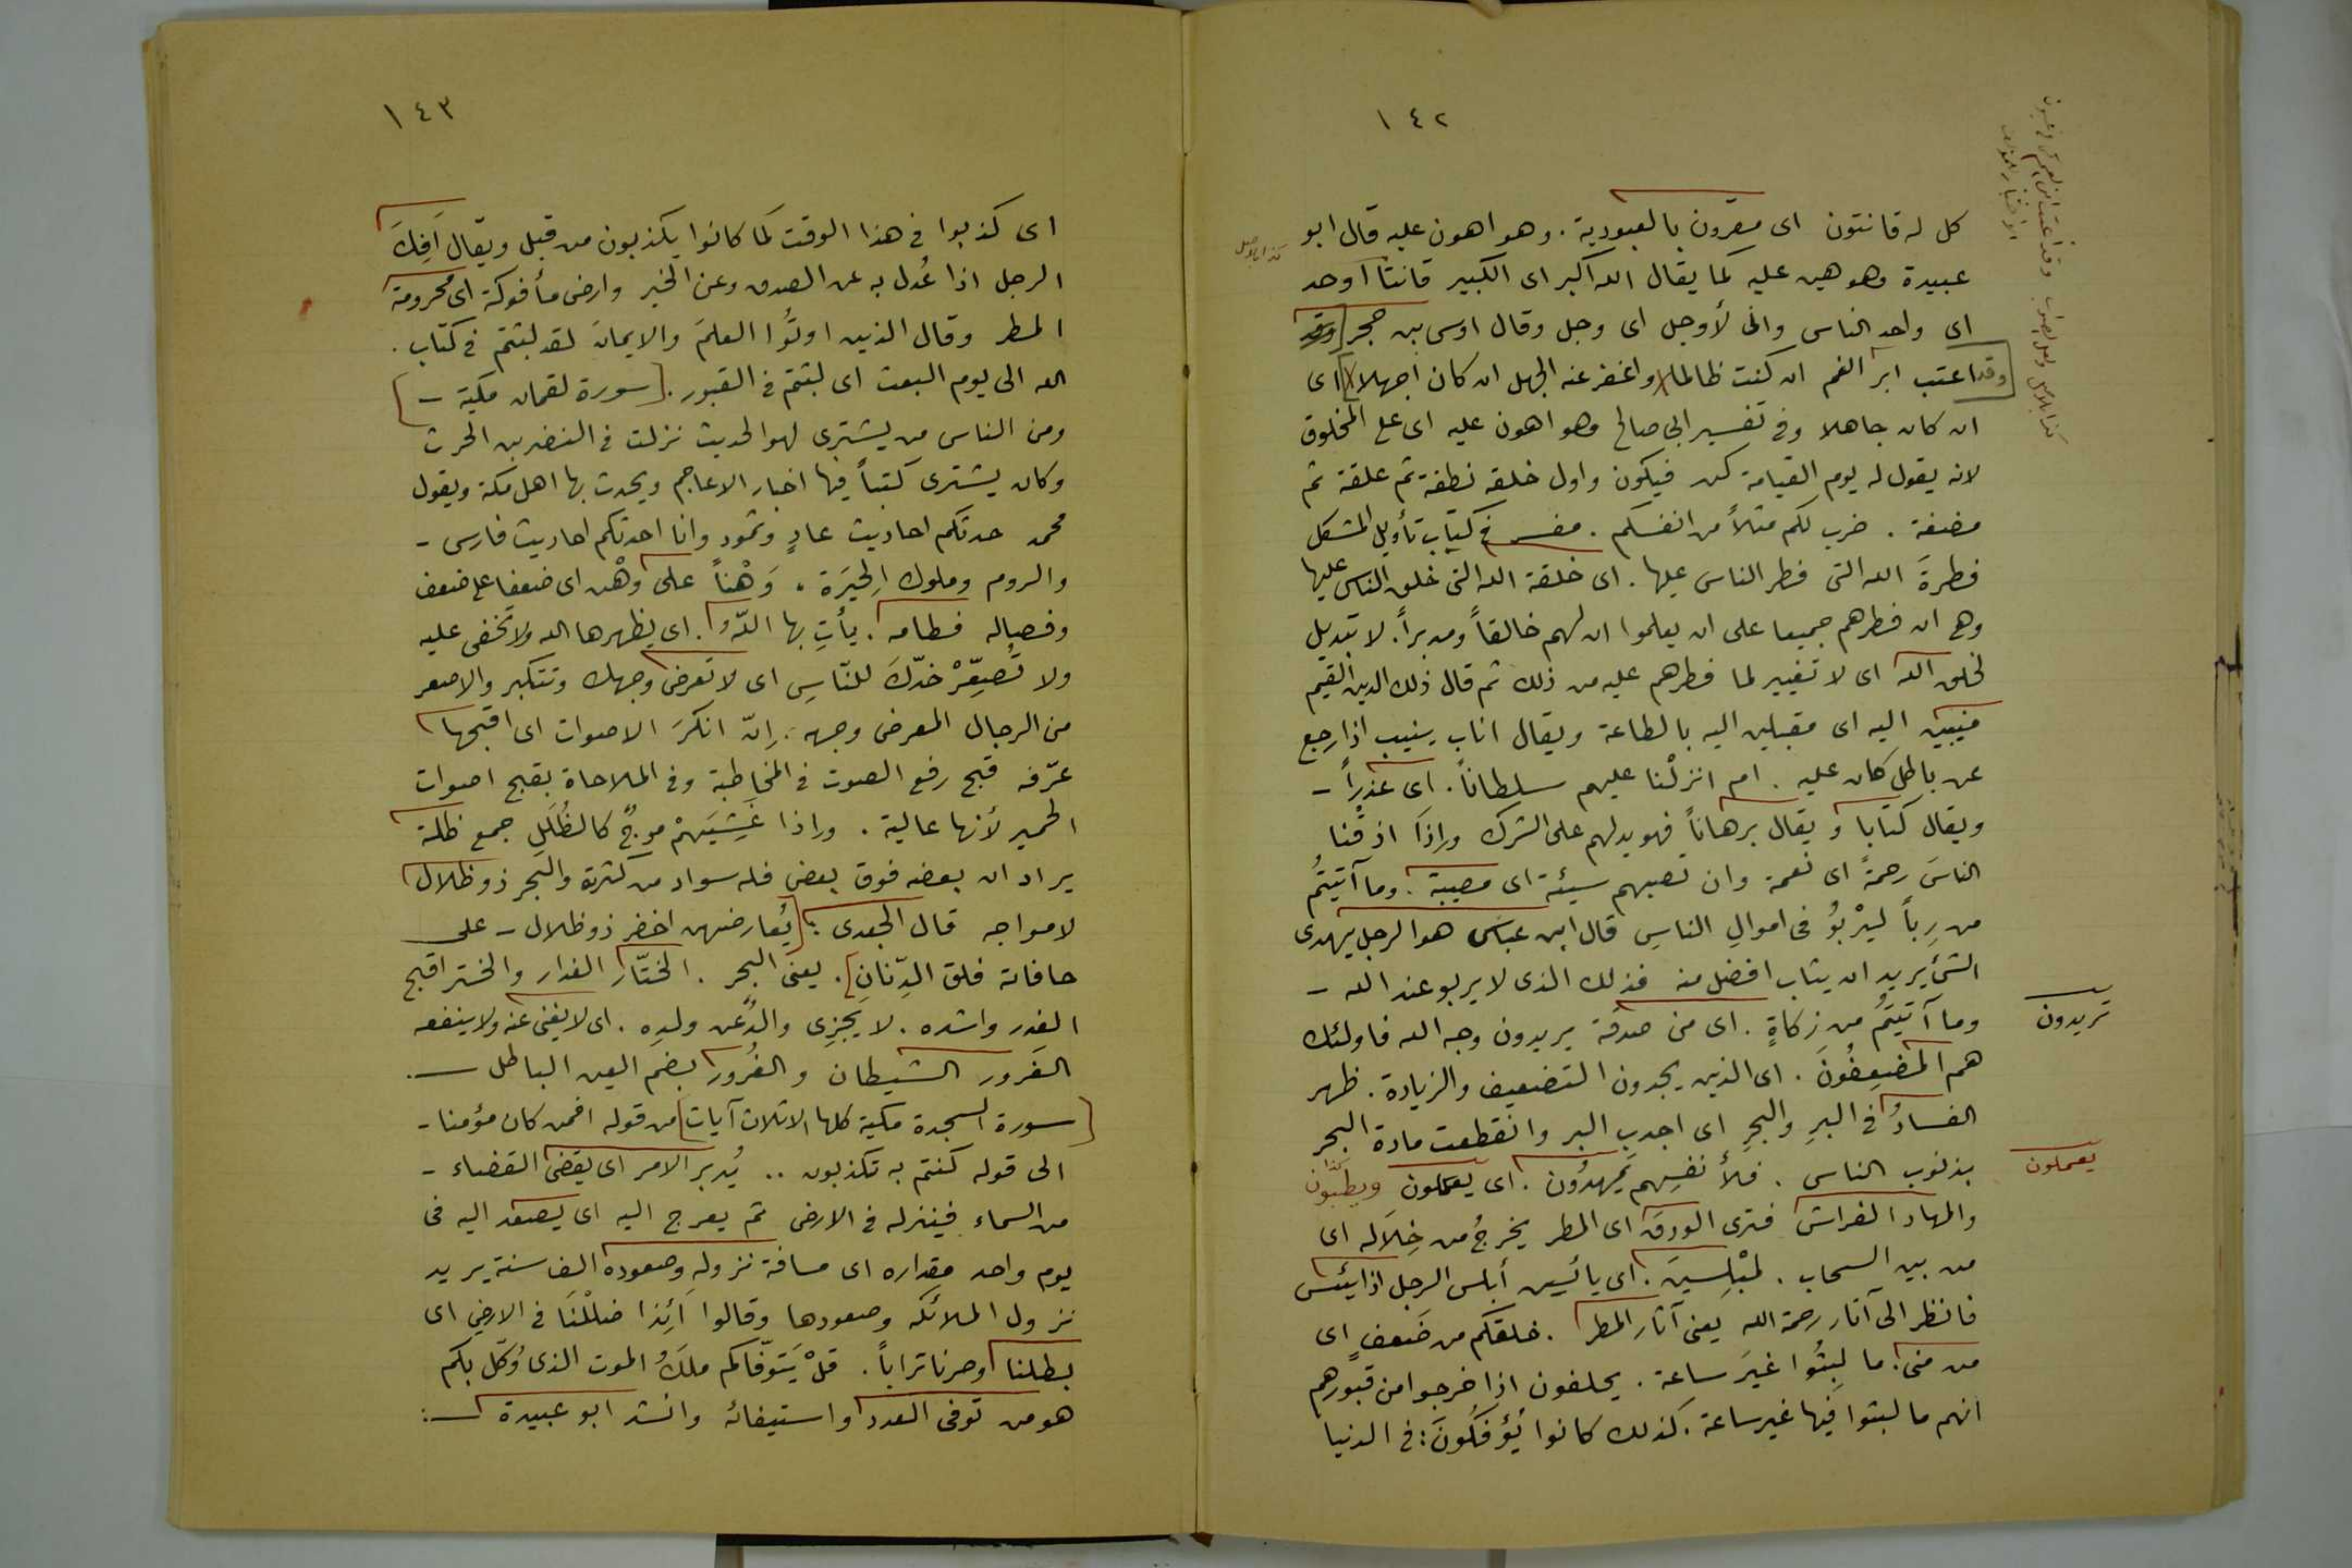 ١٤٢
كل له قانتون اى مقرون بالعبودية . وهو اهون عليه قال ابو
عبيدة وهو هين عليه كما يقال الله اكبر اى الكبير قانتا اوحد
اى واحد الناس وانى لأوجل اى وجل وقال اوس بن حجر
وقد اعتب ابن العم ان كنت ظالما واغفر عنه الجهل ان كان اجهلا اى
ان كان جاهلا وفى تفسير ابى صالح وهو اهون عليه اى على المخلوق
لانه يقول له يوم القيامة كن فيكون واول خلقه نطفة ثم علقة ثم
مضغة . ضرب لكم مثلاً من انفسكم . مفسر فى كتاب تأويل المشكل
فطرةَ الله التى فطر الناس عليها . اى خلقة الله التى خلق الناس عليها
وهى ان فطرهم جميعا على ان يعلموا ان لهم خالقاً ومدبراً . لا تبديل
لخلق الله اى لا تغيير لما فطرهم عليه من ذلك ثم قال ذلك الدين القيم
منيبين اليه اى مقبلين اليه بالطاعة ويقال اناب ينيب اذا رجع
عن باطل كان عليه . ام انزلْنا عليهم سلطاناً . اى عذراً -
ويقال كتابا ويقال برهاناً فهو يدلهم على الشرك وإذَا اذقْنا
الناسَ رحمةً اى نعمة وان تصبهم سيئة اى مصيبة . وما آتيتُم
من رِباً ليرْبوُ فى اموالِ الناسِ قال ابن عباس هو الرجل يهدى
الشئ يريد ان يثاب افضل منه فذلك الذى لا يربو عند الله -
وما آتيتُم من زكاةٍ . اى من صدقة يريدون وجه الله فاولئك
تريدون
هم المضعِفُونَ . اى الذين يجدون التضعيف والزيادة . ظهر
الفسادُ فى البرِ والبحرِ اى اجدب البر وانقطعت مادة البحر
بذنوب الناس . فلأنفسِهم يَمهدُون . اى يعملون ويطبون
كذا
يعملون
والمهاد الفراش فترى الودقَ اى المطر يخرجُ من خِلَاله اى
من بين السحاب . لمبْلِسينَ . اى يائسين أبلس الرجل اذا يئس
فانظر الى آثار رحمة الله يعنى آثار المطر . خلقكم من ضَعفٍ اى
من منى . ما لبِثُوا غيرَ ساعة . يحلفون اذا خرجوا من قبورهم
انهم ما لبثوا فيها غير ساعة . كذلك كانوا يُؤفَكُونَ : فى الدنيا
١٤٣
اى كذبوا فى هذا الوقت كما كانوا يكذبون من قبل ويقال أَفِكَ
الرجل اذا عُدل به عن الصدق وعن الخير وارض مأفوكة اى محرومة
المطر وقال الذين اوتُوا العلمَ والايمانَ لقد لبثتم فى كتاب .
الله الى يوم البعث اى لبثتم فى القبور . [سورة لقمان مكية -]
ومن الناس من يشترى لهو الحديث نزلت فى النضر بن الحرث
وكان يشترى كتباً فيها اخبار الاعاجم ويحدث بها اهل مكة ويقول
محمد حدثكم احاديث عادٍ وثمود وانا احدثكم احاديث فارس -
والروم وملوك الحِيَرة . وَهْناً على وهْن اى ضعفا على ضعف
وفصاله فطامه . يأتِ بها اللّهُ . اى يظهرها الله ولا تخفى عليه
ولا تُصَعِّرْ خدّكَ للنّاسِ اى لا تعرض وجهك وتتكبر والاصعر
من الرجال المعرض وجهه . إنّ انكرَ الاصوات اى اقبحها
عرّفه قبح رفع الصوت فى المخاطبة وفى الملاحاة بقبح اصوات
الحمير لأنها عالية . وإذا غَشِيَهمْ موجٌ كالظُلَلِ جمع ظلة
يراد ان بعضه فوق بعض فله سواد من كثرته والبحر ذو ظلال
لامواجه قال الجعدى : [يُعارضهن اخضر ذو ظلال - على
حافاته فلق الدِّنانِ] . يعنى البحر . الختّار الغدار والختر اقبح
الغدر واشده . لا يَجزِى والدٌ عن ولدِه . اى لا يغنى عنه ولا ينفعه
الغَرور الشيطان والغُرور بضم الغين الباطل .
[سورة السجدة مكية كلها الا ثلاث آيات] من قوله افمن كان مؤمنا -
الى قوله كنتم به تكذبون .. يُدبر الامر اى يقضى القضاء -
من السماء فينزله فى الارض ثم يعرج اليه اى يصعد اليه فى
يوم واحد مقداره اى مسافة نزوله وصعوده الف سنة يريد
نزول الملائكه وصعودها وقالوا أَئِذا ضلْلنَا فى الارضِ اى
بطلنا وصرنا تراباً . قلْ يَتوَفّاكم ملَكُ الموت الذى وُكّل بكم
هو من توفى العدد واستيفائه وانشد ابو عبيدة :